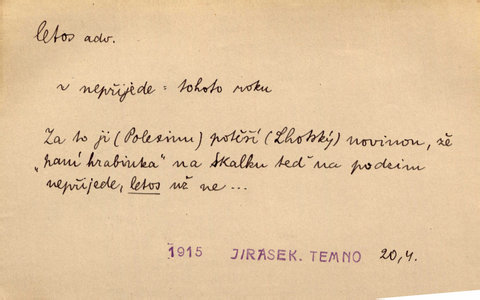 letos adv.
v nepřijede = tohoto roku
Za to ji (Polexinu) potěší (Lhotský) novinou, že
„paní hraběnka“ na Skalku teď na podzim
nepřijede, letos už ne ...
1915 JIRÁSEK. TEMNO 20,4.